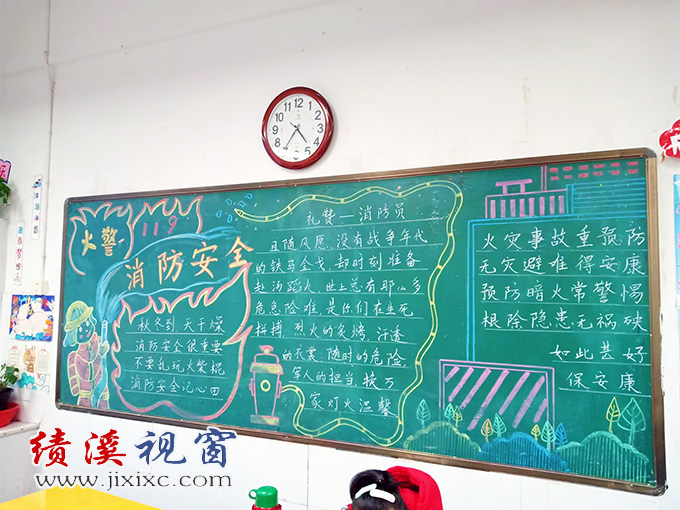 火警
119
消防安全
秋冬到 天干燥
消防安全很重要
不要乱玩火柴棍
消防安全记心田
礼赞—消防员
且随风愿,没有战争年代
的铁马金戈,却时刻准备
赴汤蹈火,世上总有那么多
危急险难,是你们在生死
拼搏,烈火的炙烤,汗透
的衣裳,随时的危险,
军人的担当,换万
家灯火温馨
火灾事故重预防
无灾避难得安康
预防暗火常警惕
根除隐患无祸殃
如此甚好
保安康
绩溪视窗
www.jixixc.com